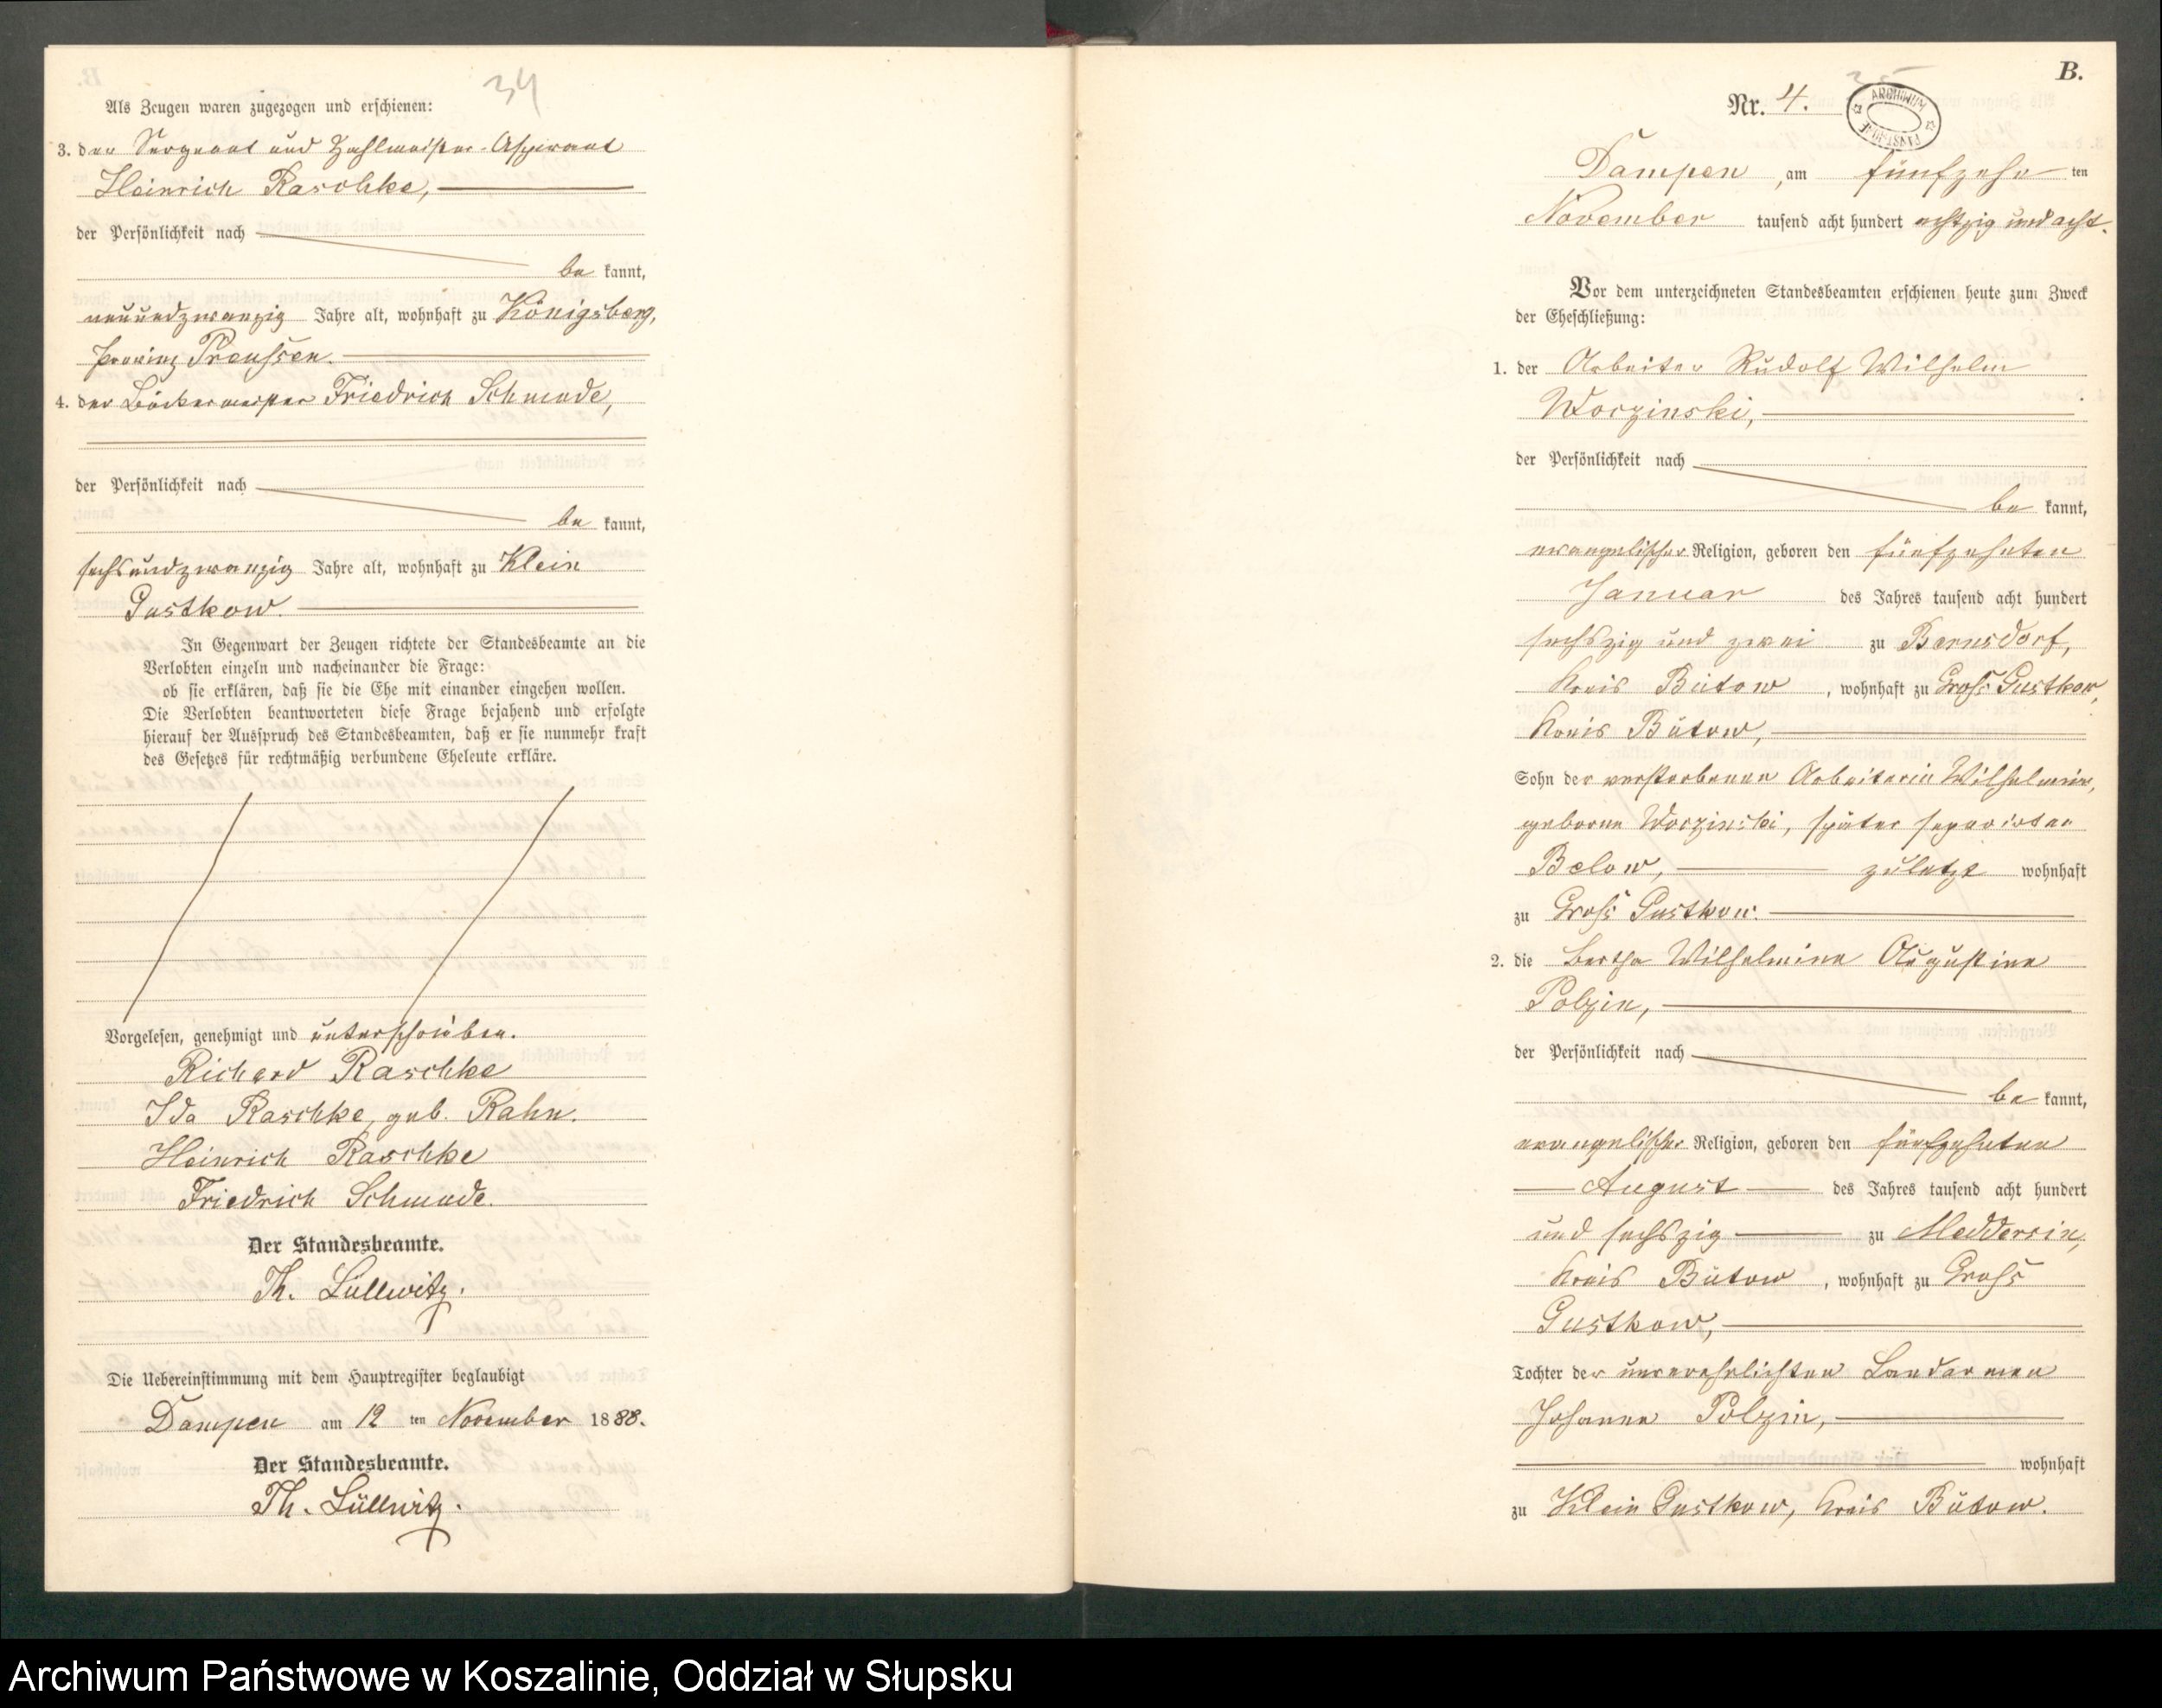 34
Als Zeugen waren zugezogen und erschienen:
3. der Sergeant und Zahlmeister-Aspirant
Heinrich Raschke,
der Persönlichkeit nach
be kannt,
neunundzwanzig Jahre alt, wohnhaft zu Königsberg,
Provinz Preußen.
4. der Bäckermeister Friedrich Schmude,
der Persönlichkeit nach
be kannt,
sechsundzwanzig Jahre alt, wohnhaft zu Klein
Gustkow.
In Gegenwart der Zeugen richtete der Standesbeamte an die
Verlobten einzeln und nacheinander die Frage:
ob sie erklären, daß sie die Ehe mit einander eingehen wollen.
Die Verlobten beantworteten diese Frage bejahend und erfolgte
hierauf der Ausspruch des Standesbeamten, daß er sie nunmehr kraft
des Gesetzes für rechtmäßig verbundene Eheleute erkläre.
Vorgelesen, genehmigt und unterschrieben.
Richard Raschke
Ida Raschke, geb. Rahn.
Heinrich Raschke
Friedrich Schmude.
Der Standesbeamte.
Th. Lüllwitz.
Die Uebereinstimmung mit dem Hauptregister beglaubigt
Dampen am 12 ten November 1888.
Der Standesbeamte.
Th. Lüllwitz.
B.
Nr. 4.
ARCHIWUM
Dampen, am fünfzehn ten
November tausend acht hundert achtzig und acht.
Vor dem unterzeichneten Standesbeamten erschienen heute zum Zweck
der Eheschließung:
1. der Arbeiter Rudolf Wilhelm
Worzinski,
der Persönlichkeit nach
be kannt,
evangelischer Religion, geboren den fünfzehnten
Januar des Jahres tausend acht hundert
sechszig und zwei zu Bernsdorf,
Kreis Bütow, wohnhaft zu Groß Gustkow,
Kreis Bütow,
Sohn der verstorbenen Arbeiterin Wilhelmine,
geborne Worzinski, später separirten
Below, zuletzt wohnhaft
zu Groß Gustkow.
2. die Bertha Wilhelmine Augustine
Polzin,
der Persönlichkeit nach
be kannt,
evangelischer Religion, geboren den fünfzehnten
August des Jahres tausend acht hundert
und sechszig zu Meddersin,
Kreis Bütow, wohnhaft zu Groß
Gustkow,
Tochter der unverehelichten Landarmen
Johanne Polzin,
wohnhaft
zu Klein Gustkow, Kreis Bütow.
Archiwum Państwowe w Koszalinie, Oddział w Słupsku